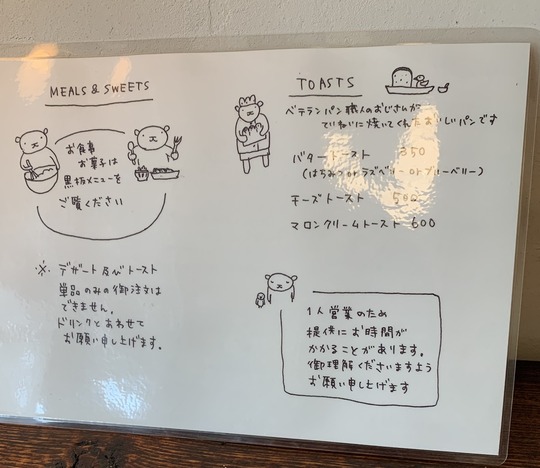 MEALS & SWEETS
お食事
お菓子は
黒板メニューを
ご覧ください
※. デザート及びトースト
単品のみの御注文は
できません。
ドリンクとあわせて
お願い申し上げます。
TOASTS
ベテランパン職人のおじさんが
ていねいに焼いてくれたおいしいパンです
バタートースト 350
(はちみつ or ラズベリー or ブルーベリー)
チーズトースト 500
マロンクリームトースト 600
1人営業のため
提供にお時間が
かかることがあります。
御理解くださいますよう
お願い申し上げます